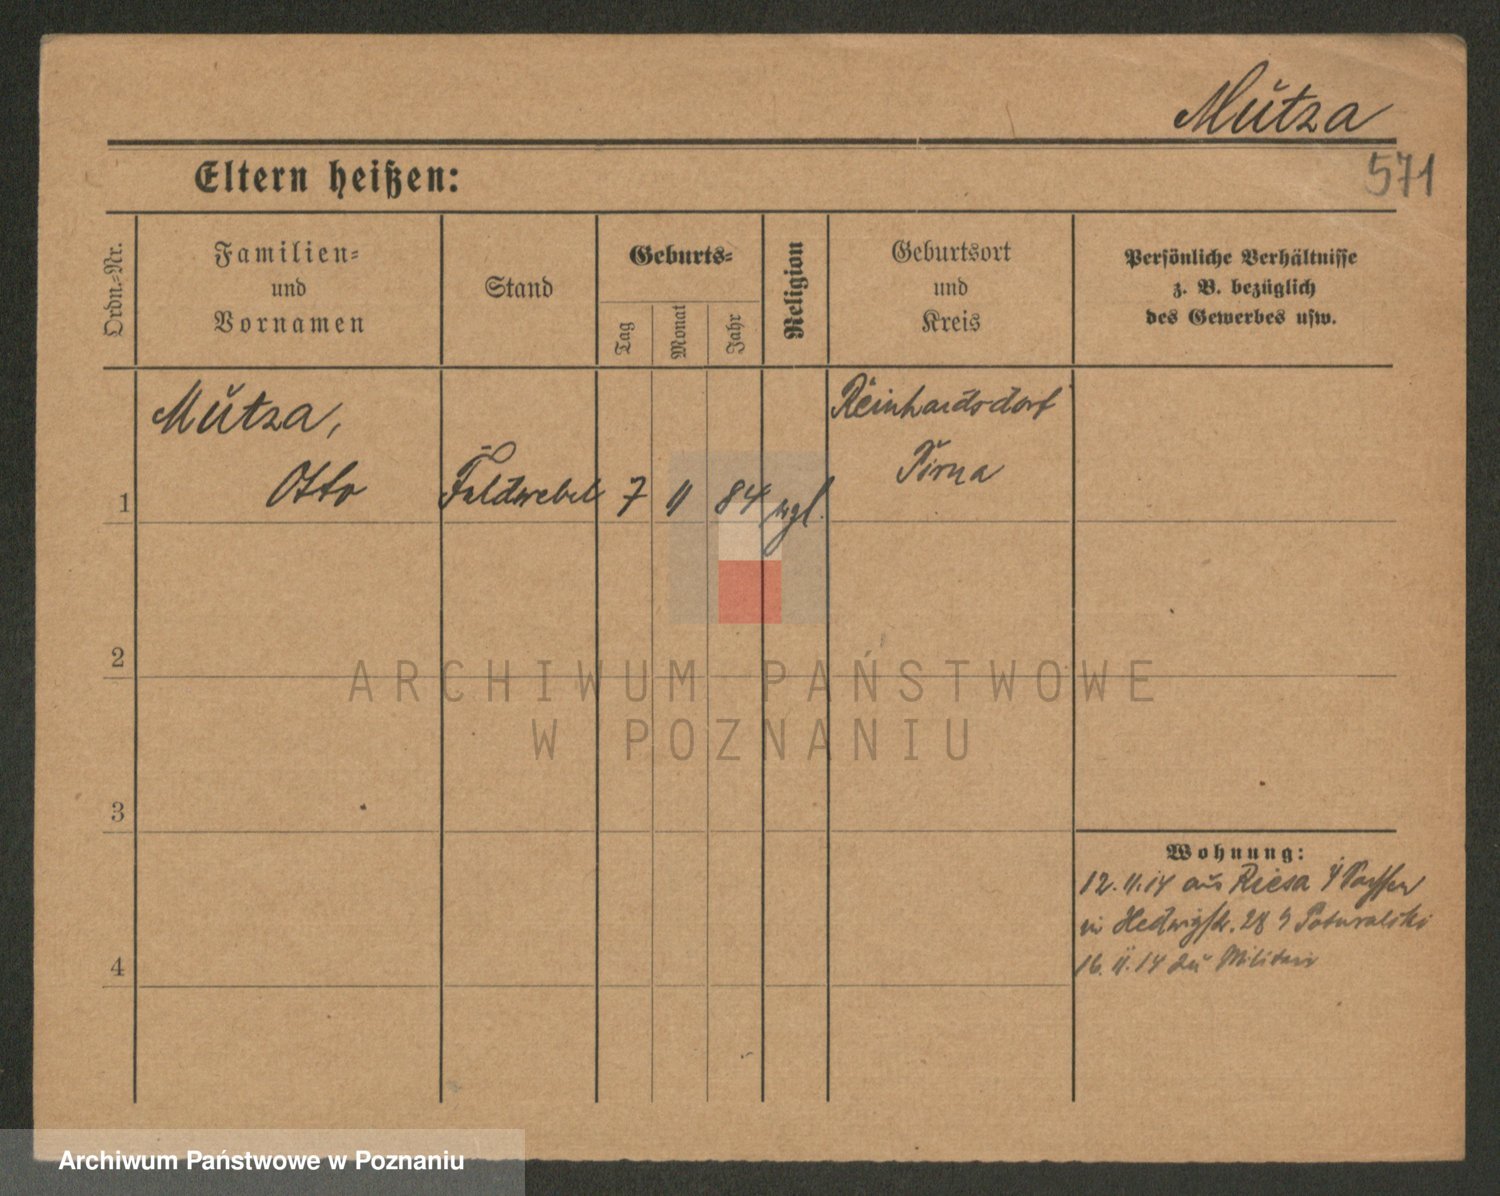 Mutza
571
Eltern heißen:
Ordn.-Nr.
Familien-
und
Vornamen
Stand
Geburts-
Tag
Monat
Jahr
Religion
Geburtsort
und
Kreis
Persönliche Verhältnisse
z. B. bezüglich
des Gewerbes usw.
1
Mutza,
Otto
Feldwebel
7
11
84
evgl.
Reinhardsdorf
Pirna
2
3
4
Wohnung:
12.11.14 aus Riesa
in Hedwigstr. 28
16.11.14 zu Militär
ARCHIWUM PAŃSTWOWE
W POZNANIU
Archiwum Państwowe w Poznaniu